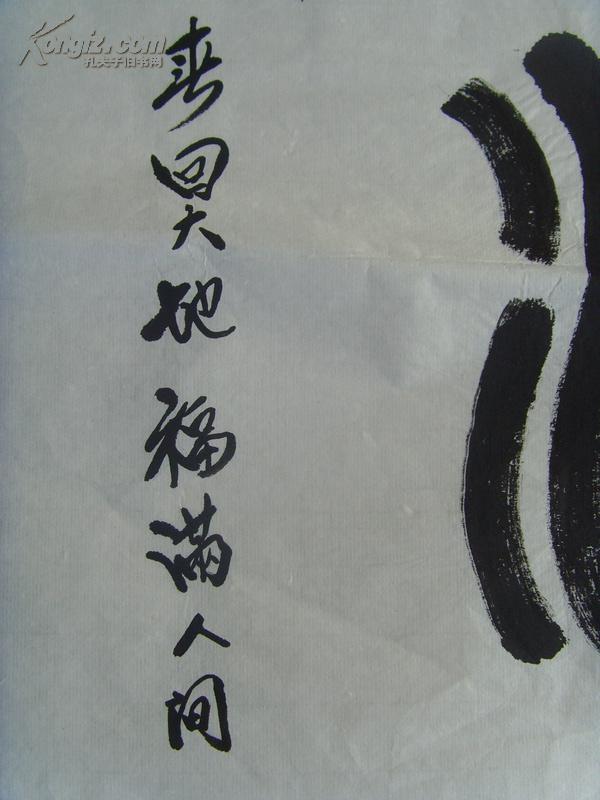 春回大地 福满人间
Kongfz.com
孔夫子旧书网